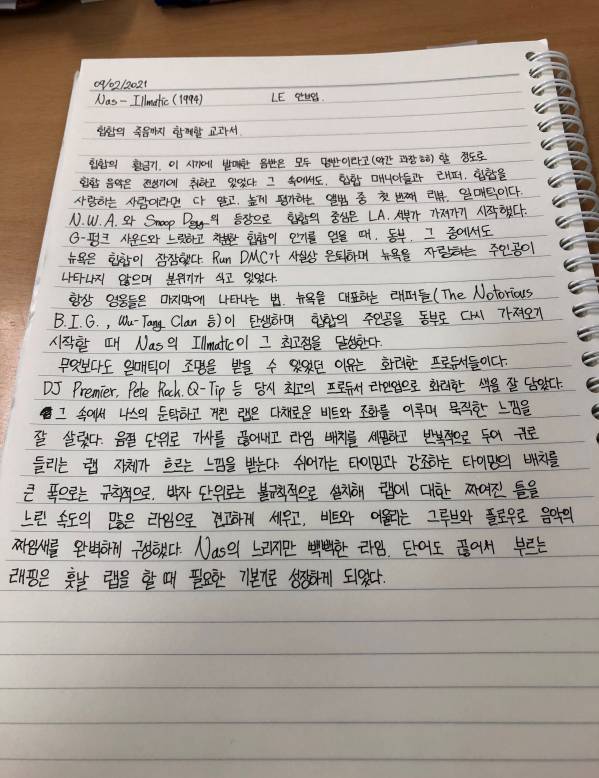 09/02/2021
Nas - Illmatic (1994) LE 안브입.
힙합의 죽음까지 함께할 교과서.
힙합의 황금기, 이 시기에 발매한 음반은 모두 명반이라고(약간 과장 해) 할 정도로
힙합 음악은 전성기에 취하고 있었다. 그 속에서도, 힙합 매니아들과 래퍼, 힙합을
사랑하는 사람이라면 다 알고, 높게 평가하는 앨범 중 첫 번째 리뷰, 일매틱이다.
N.W.A.와 Snoop Dogg의 등장으로 힙합의 중심은 LA, 서부가 가져가기 시작했다.
G-펑크 사운드와 느릿하고 차분한 힙합이 인기를 얻을 때, 동부, 그 중에서도
뉴욕은 힙합이 잠잠했다. Run DMC가 사실상 은퇴하며 뉴욕을 자랑하는 주인공이
나타나지 않으며 분위기가 식고 있었다.
항상 영웅들은 마지막에 나타나는 법. 뉴욕을 대표하는 래퍼들(The Notorious
B.I.G., Wu-Tang Clan 등)이 탄생하며 힙합의 주인공을 동부로 다시 가져오기
시작할 때 Nas의 Illmatic이 그 최고점을 달성한다.
무엇보다도 일매틱이 조명을 받을 수 있었던 이유는 화려한 프로듀서들이다.
DJ Premier, Pete Rock, Q-Tip 등 당시 최고의 프로듀서 라인업으로 화려한 색을 잘 담았다.
그 속에서 나스의 둔탁하고 거친 랩은 다채로운 비트와 조화를 이루며 묵직한 느낌을
잘 살렸다. 음절 단위로 가사를 끊어내고 라임 배치를 세밀하고 반복적으로 두어 귀로
들리는 랩 자체가 흐르는 느낌을 받는다. 쉬어가는 타이밍과 강조하는 타이밍의 배치를
큰 폭으로는 규칙적으로, 박자 단위로는 불규칙적으로 설치해 랩에 대한 짜여진 틀을
느린 속도의 많은 라임으로 견고하게 세우고, 비트와 어울리는 그루브와 플로우로 음악의
짜임새를 완벽하게 구성했다. Nas의 느리지만 빽빽한 라임, 단어도 끊어서 부르는
래핑은 훗날 랩을 할 때 필요한 기본기로 성장하게 되었다.